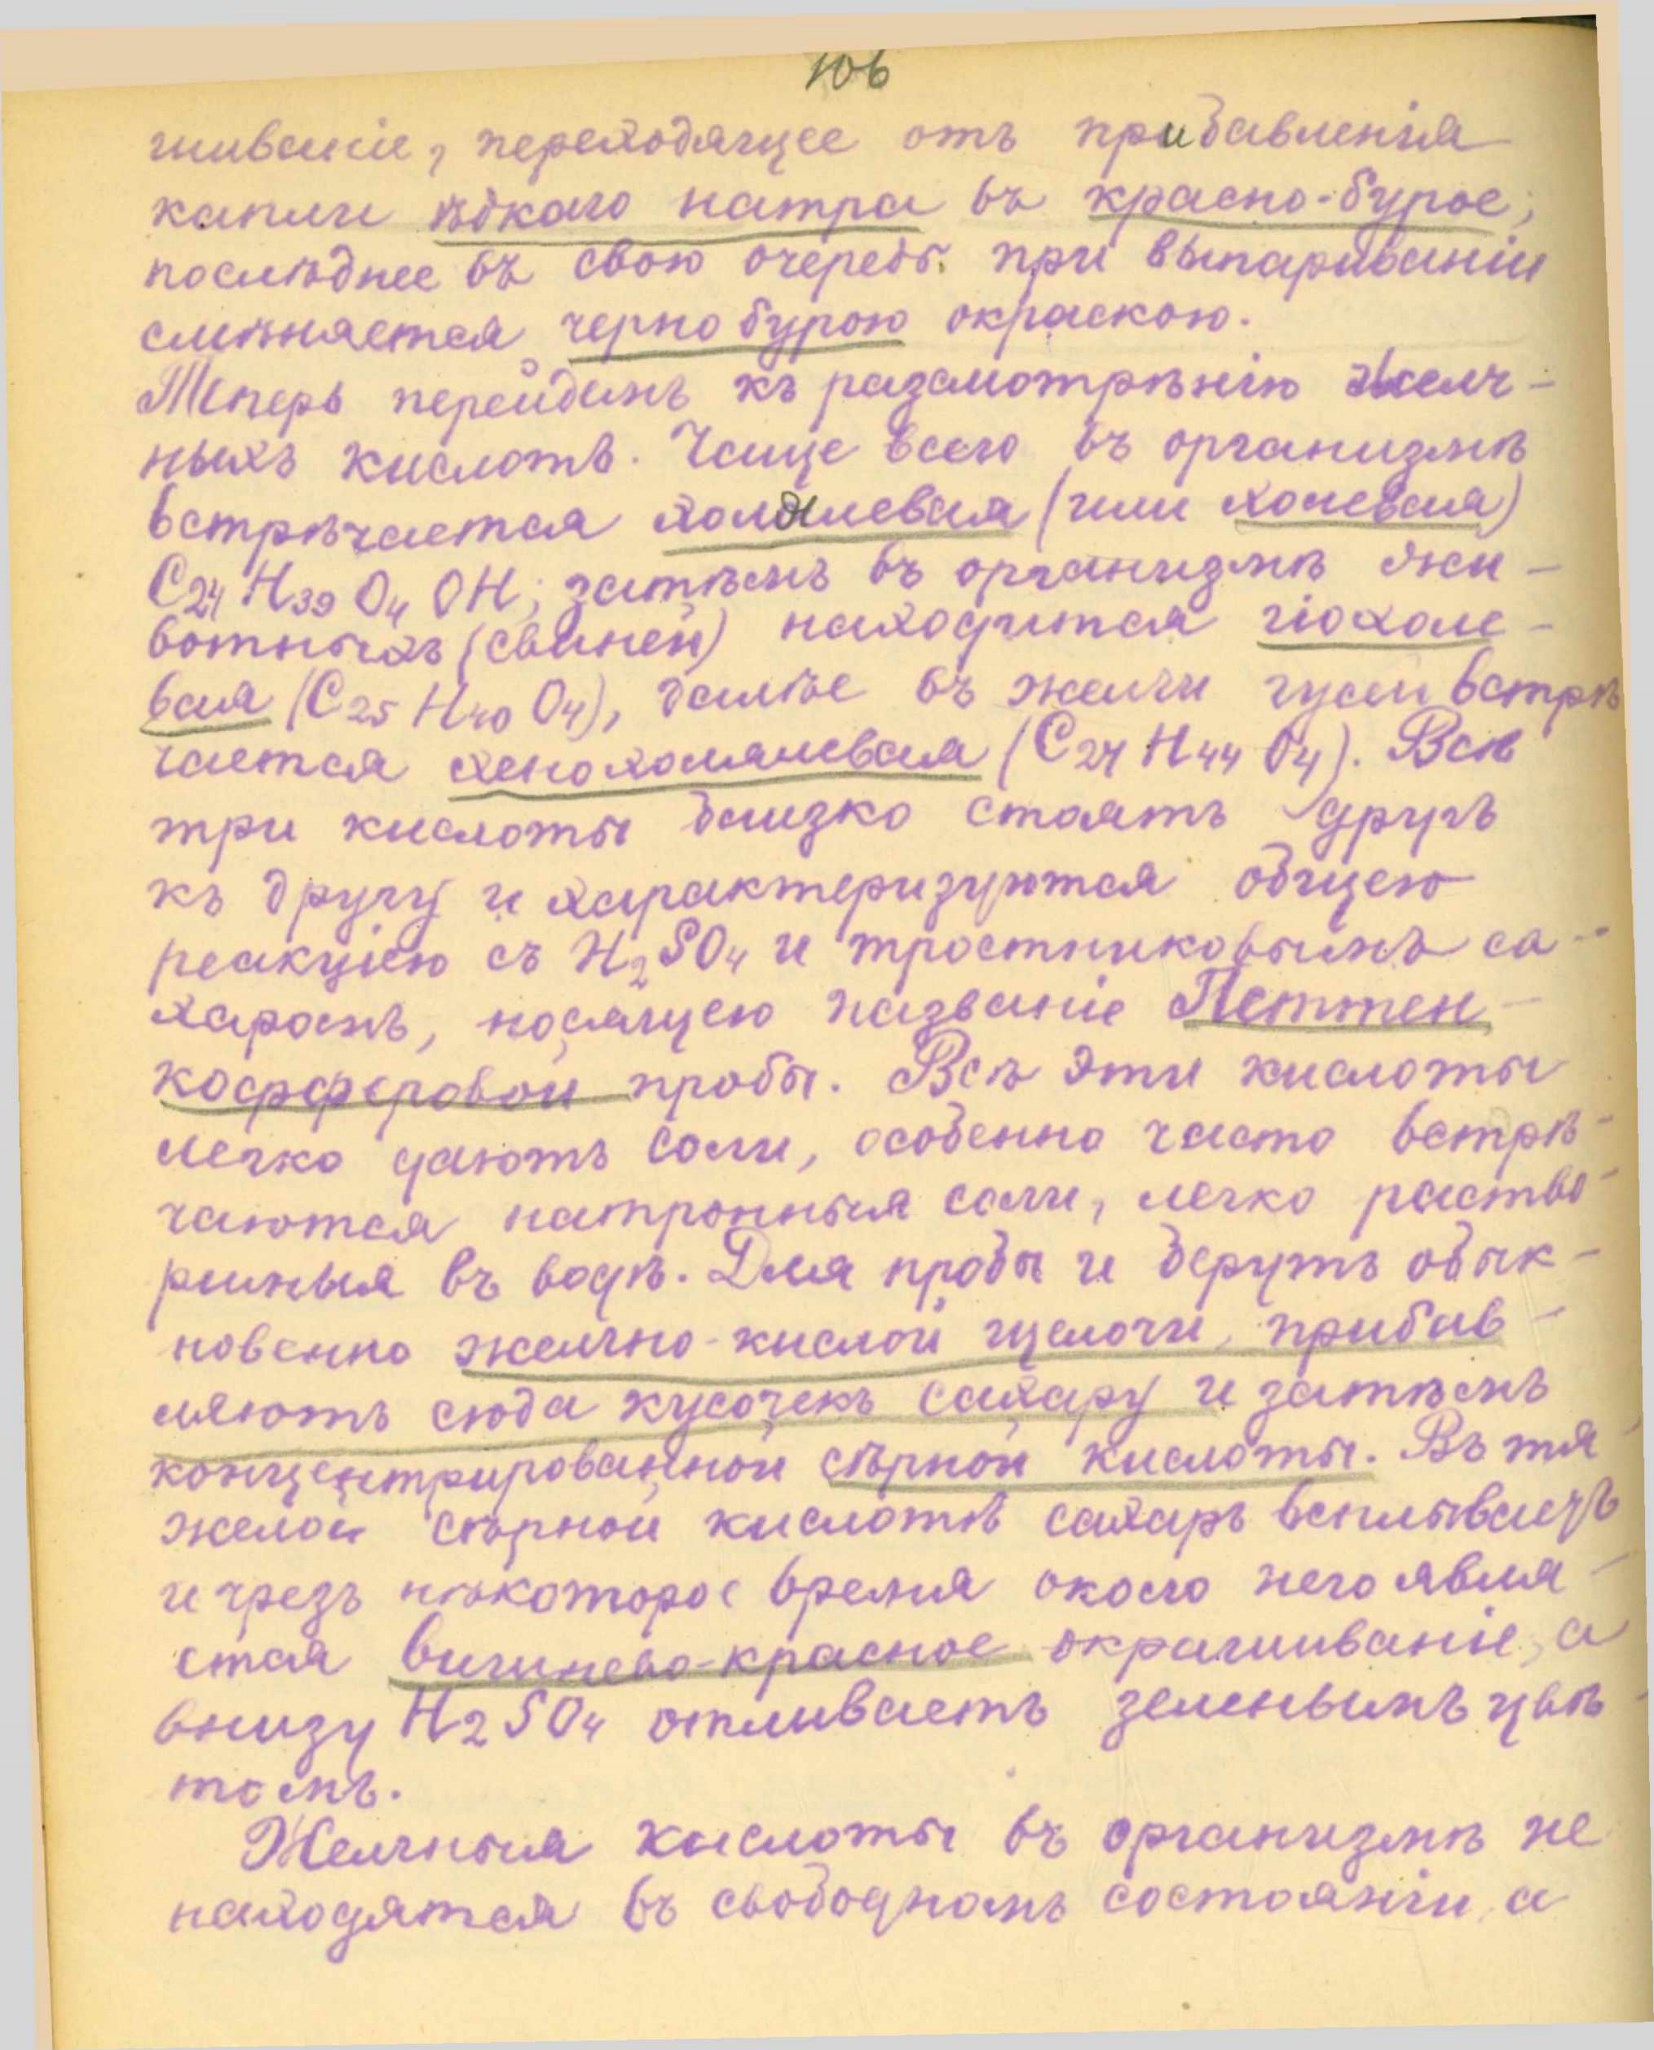 106
шиваніе, переходящее отъ прибавленія
капли ѣдкаго натра въ красно-бурое;
послѣднее въ свою очередь при выпариваніи
смѣняется черно бурою окраскою.
Теперь перейдемъ къ разсмотрѣнію желч-
ныхъ кислотъ. Чаще всего въ организмѣ
встрѣчается (или холевая)
C24 H39 O4 OH; затѣмъ въ организмѣ жи-
вотныхъ (свиней) находится гіохоле-
вая (C25 H40 O4), далѣе въ желчи гусей встрѣ
чается хенохолялевая (C27 H44 O4). Всѣ
три кислоты близко стоятъ другъ
къ другу и характеризуются общею
реакціею съ H2SO4 и тростниковымъ са-
харомъ, носящею названіе Петтен-
кофферовой пробы. Всѣ эти кислоты
легко даютъ соли, особенно часто встрѣ-
чаются натронныя соли, легко раство-
римыя въ водѣ. Для пробы и берутъ обык-
новенно желчно-кислой щелочи, прибав-
ляютъ сюда кусочекъ сахару и затѣмъ
концентрированной сѣрной кислоты. Въ тя-
желой сѣрной кислотѣ сахаръ всплываетъ
и чрезъ нѣкоторое время около него явля-
ется вишнево-красное окрашиваніе, а
внизу H2SO4 отливаетъ зеленымъ цвѣ-
томъ.
Желчныя кислоты въ организмѣ не
находятся въ свободномъ состояніи, а